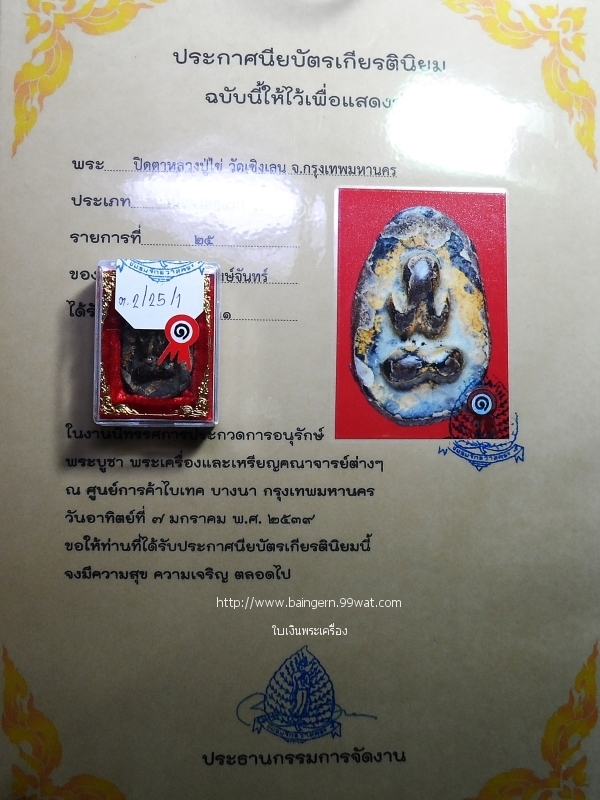 ประกาศนียบัตรเกียรตินิยม
ฉบับนี้ให้ไว้เพื่อแสดง
พระ ปิดตาหลวงปู่ไข่ วัดเชิงเลน จ.กรุงเทพมหานคร
ประเภท
รายการที่ ๒๕
ของ ษ์จันทร์
ได้รั ๑
ต.2/25/1
๑
๑
ในงานนิทรรศการประกวดการอนุรักษ์
พระบูชา พระเครื่องและเหรียญคณาจารย์ต่างๆ
ณ ศูนย์การค้าไบเทค บางนา กรุงเทพมหานคร
วันอาทิตย์ที่ ๗ มกราคม พ.ศ. ๒๕๓๙
ขอให้ท่านที่ได้รับประกาศนียบัตรเกียรตินิยมนี้
จงมีความสุข ความเจริญ ตลอดไป
http://www.baingern.99wat.com
ใบเงินพระเครื่อง
ประธานกรรมการจัดงาน